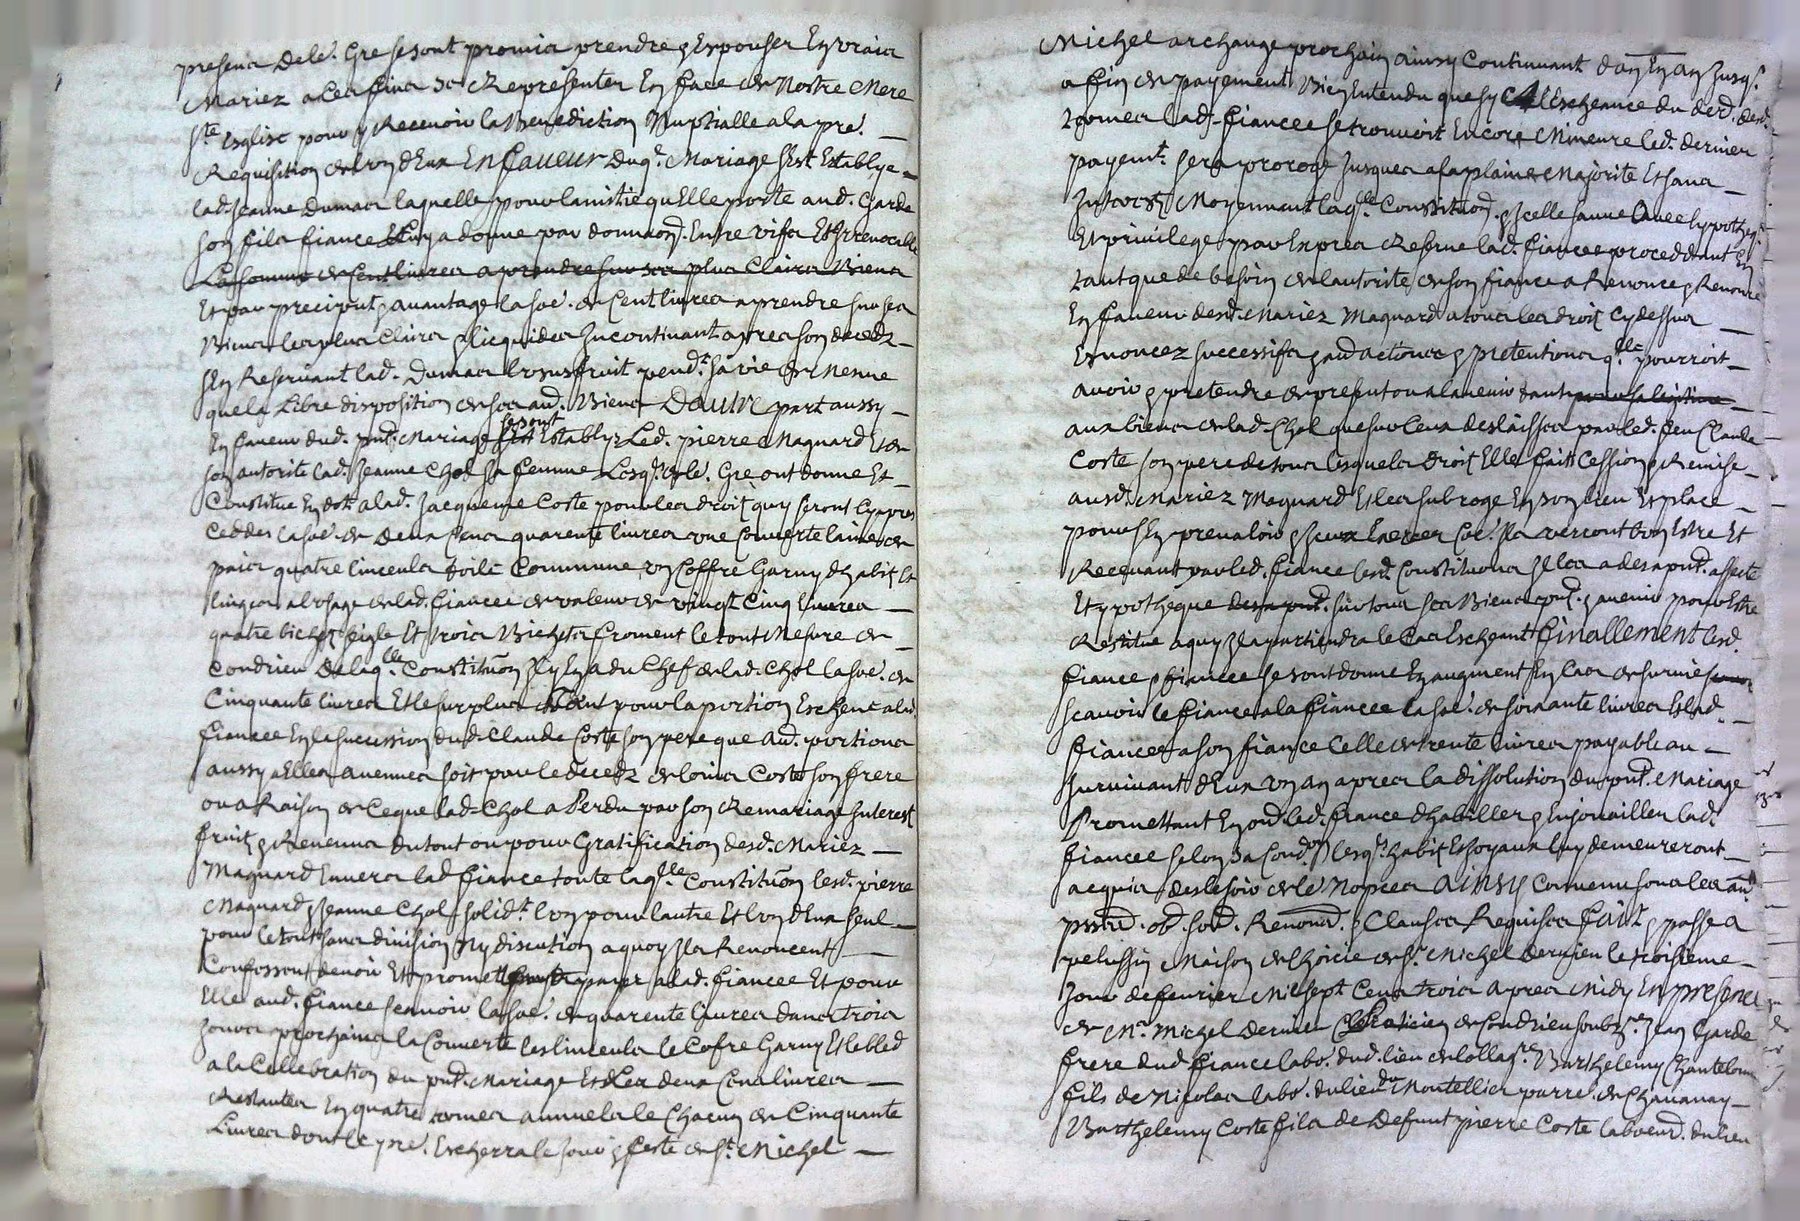 presence De le. Gre se sont promis prendre & Espouser En vraix
Mariez a les fins de se Représenter En face de Nostre Mere
Ste Esglise pour y Recevoir la Benediction Nuptialle a la pre.
Requisition de lun dEux En faveur duql. Mariage sEst Establye
lad. Jeanne Dumas laquelle pour lamitie quElle porte aud. Garde
son fils fiance luy a donne par donnaon. Entre vifs Et Irrevocable
La somme de Cent livres a prendre sur ses plus Clairs Biens
Et par preciput & avantage la soe. de Cent livres a prendre sur ses
Biens les plus Clairs & licquides Incontinant apres son decedz
sEn Reservant lad. Dumas lusufruit pendt. sa vie de Mesme
que la Libre disposition de ses aud. Biens Dautre part aussy
En faveur dud. pnt. Mariage se sont Establys Led. pierre Magnard Et de
son autorite lad. Jeanne Chol sa femme Lesqs. de le. Gre ont donne Et
Constitue En dot a lad. Jacqueme Coste pour les droit quy seront Cy apres
Ceddes la soe. de Deux Cens quarente livres une Couverte laine de
paix quatre linceuls toile Commune un Coffre Garny dhabit Et
linges a lusage de lad. fiancee de valeur de vingt Cinq livres
quatre bichet seigle Et trois Bichets froment le tout Mesure de
Condrieu De laqlle Constituon Il y En a du Chef de lad. Chol la soe. de
Cinquante livres Et le surplus Est pour la portion Escheue a lad.
fiancee En la sucession dud. Claude Coste son pere que aud. portions
aussy a Elles avennues soit par le decedz de louis Coste son frere
ou a Raison de Ce que lad. Chol a Perdu par son Remariage Interest
fruit & Revenus du tout ou pour Gratification desd. Mariez
Magnard Envers lad fiance toute laqlle Constituon lesd. pierre
Magnard & Jeanne Chol solidt. lun pour lautre Et lun dEux seul
pour le tout sans division Ny discution a quoy Ils Renoncent
Confessent devoir Et promettent payer a lad. fiancee Et pour
Elle aud. fiance scavoir la soe. de quarente livres dans trois
Jours prochains la Couverte les linceuls le Cofre Garny Et le bled
a la Cellebration du pnt. Mariage Et Les deux Cens livres
Restantes En quatre termes annuels le Chacun de Cinquante
Livres dont le pre. Escherra le Jour & feste de St. Michel
Michel archange prochain ainsy Continuant dan En an Jusqs.
a fin de payement Bien Entendu que sy a lEscheance du der. desd.
termes lad. fiancee se trouvoit Encore Mineure led. dernier
payemt. sera proroge Jusques a sa plaine Majorite Et sans
Interest Moyennant laqlle Constituon. & Icelle sauve avec hypotheq.
Et privilege par Expres Reserve lad. fiancee proceddant En
tant que de besoin de lautorite de son fiance a Renonce & Renonce
En faveur desd. Mariez Magnard a tous les droit Cy dessus
Enoncez successifs & aud actions & pretentions qlle pourroit
avoir & pretendre de present ou a lavenir tant pour sa legitime
aux biens de lad. Chol que sur Ceux deslaisses par led. feu Claude
Coste son pere de tous lesquels Droit Elle fait Cession & Remise
ausd. Mariez Magnard Et les subroge En son lieu Et place
pour sEn prevaloir & Iceux Exercer Coe. Ils verront bon Estre Et
Recevant par led. fiance lesd. Constituons Il les a des a pnt. affecte
Et ypotheque des a pnt. sur tous ses Biens pnt. & avenir pour Estre
Restitue a quy Il apartiendra le Cas Escheant finallement lesd.
fiance & fiancee se sont donne En augment En Cas de survie
scavoir le fiance a la fiancee la soe. de soixante livres Et lad.
fiancee a son fiance Celle de trente livres payable au
survivant dEux un an apres la dissolution du pnt. Mariage
Promettant En oud. led. fiance dhabiller & Enjoailler lad.
fiancee selon sa Condon lesqs. habit Et Joyaux luy demeureront
acquis des le soir de le Nopces ainsy Convenu sous les
prom. ob. soum. Renond. & Clauses Requises fait & passe a
pelussin Maison de hoirie de Sr. Michel Dervieu le troisieme
Jour de fevrier Mil sept Cens trois apres Midy En presence
de Mr. Michel Dervieu Praticien de Condrieu soubz. Jean Garde
frere dud fiance labo. dud. lieu de Collag. Barthelemy Chantelouve
fils de Nicolas labo. du lieu du Montellier parre. de Chavanay
Barthelemy Coste fils de Deffunt pierre Coste laboeur. du lieu